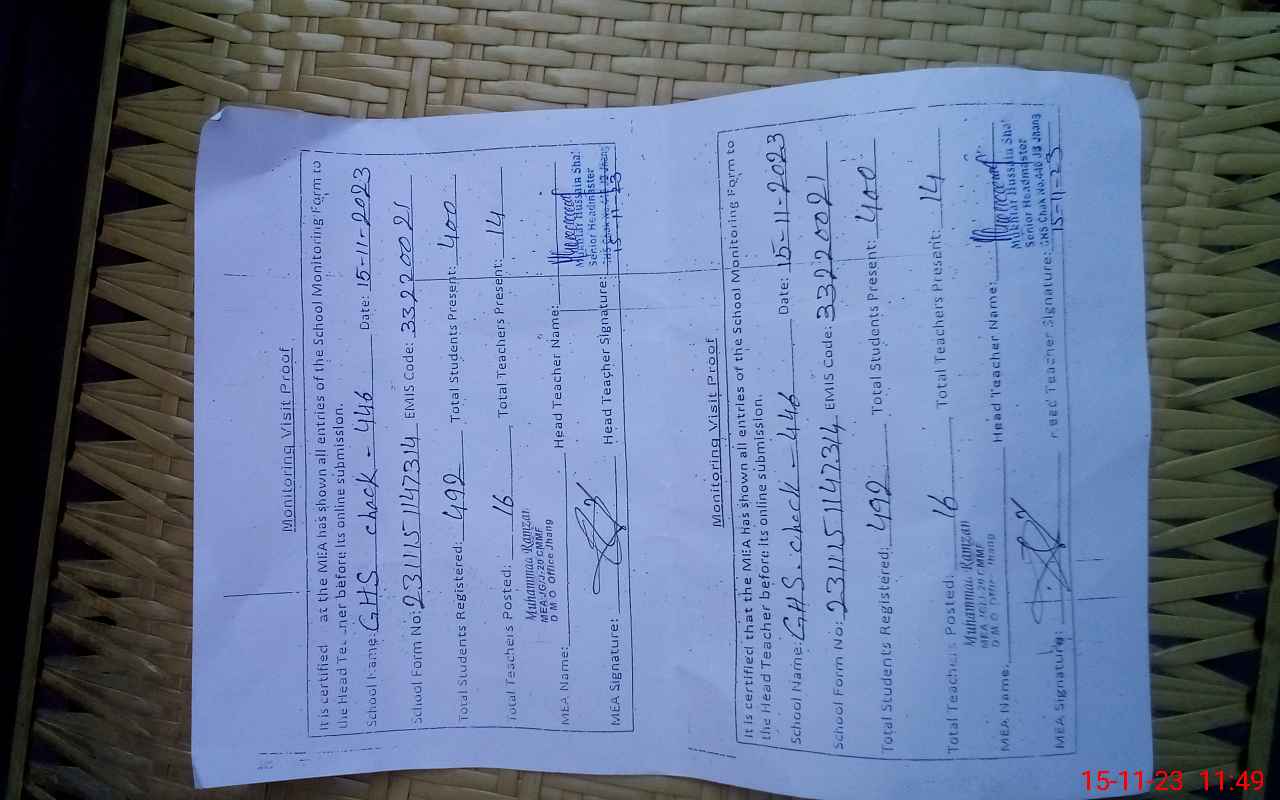 Monitoring Visit Proof
It is certified at the MEA has shown all entries of the School Monitoring Form to
the Head ner before its online submission.
School Name: GHS chack - 446 Date: 15-11-2023
School Form No: 231115114 7314 EMIS Code: 33220021
Total Students Registered: 492 Total Students Present: 400
Total Teachers Posted: 16, Total Teachers Present: 14
Muhammad Ramzan
MEA-JG/J-20 CMMF
D M O Office Jhang
MEA Name: Head Teacher Name:
Mukhtar Hussain Sha
Senior Headmaster
GHS Chak No.446 JB Jhang
MEA Signature: Head Teacher Signature: 15-11-23
Monitoring Visit Proof
It is certified that the MEA has shown all entries of the School Monitoring Form to
the Head Teacher before its online submission.
School Name: GHS. check - 446, Date: 15-11-2023
School Form No: 2311151147314 EMIS Code: 33220021
Total Students Registered: 492, Total Students Present: 400
Total Teachers Posted: 16, Total Teachers Present: 14
Muhammad Ramzan
MEA JG/J-20 CMMF
D M O Office Jhang
MEA Name: Head Teacher Name:
Mukhtar Hussain Sha
Senior Headmaster
GHS Chak No.446 JB Jhang
MEA Signature: Head Teacher Signature: 15-11-23
15-11-23 11:49